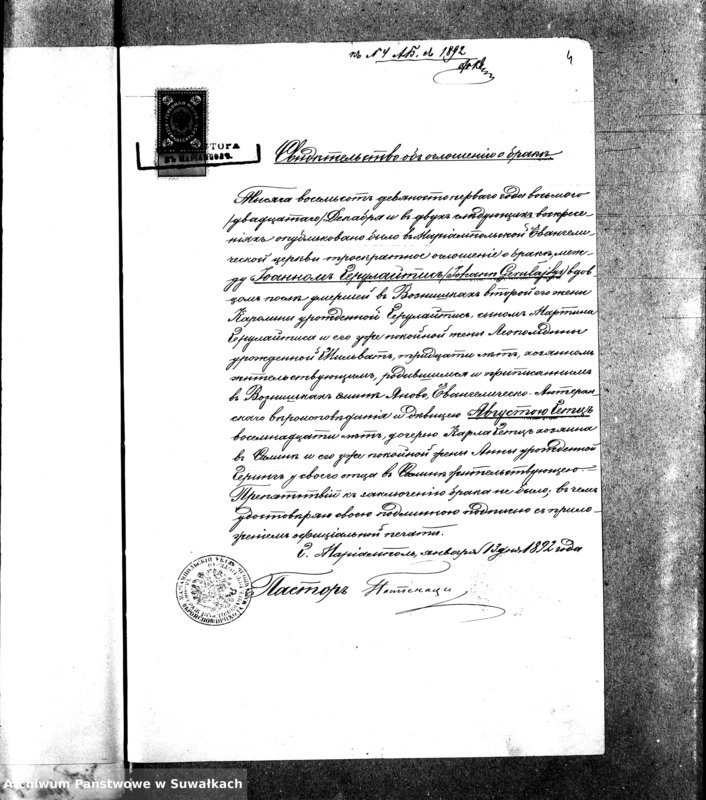 къ N 4 А.Б. съ 1892
4
ТОРА
ВЪ МАРІАМПОЛѢ.
Свидѣтельство объ оглашеніи о бракѣ
Тысяча восемьсотъ девяносто перваго года восьмого
/двадцатаго/ Декабря и въ двухъ слѣдующихъ воскресе-
ніяхъ опубликовано было въ Маріампольской Евангели-
ческой церкви троекратное оглашеніе о бракѣ, меж-
ду Іоанномъ Герулайтисъ /Johann Gerulajtys/ вдов
цомъ послѣ умершей въ Вознишкахъ второй его жены
Каролины урожденной Герулайтисъ, сыномъ Мартина
Герулайтиса и его уже покойной жены Леопольдины
урожденной, тридцати лѣтъ, хозяиномъ
жительствующимъ, родившимся и приписаннымъ
въ Вознишкахъ гмины Яново, Евангелическо-Лютеран-
скаго вѣроисповѣданія и дѣвицею Августою Сетцъ
восемнадцати лѣтъ, дочерью Карла Сетцъ хозяина
въ и его уже покойной жены Анны урожденной
Герингъ у своего отца въ жительствующею.
Препятствій къ заключенію брака не было, въ чемъ
удостовѣряю своею подлинною подписью съ прило-
женіемъ оффиціальной печати.
Г. Маріамполь, января 13 дня 1892 года
Пасторъ
Archiwum Państwowe w Suwałkach